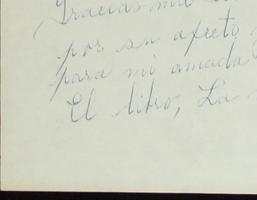 Gracias mil
por su afecto
para mi amada
El libro, La